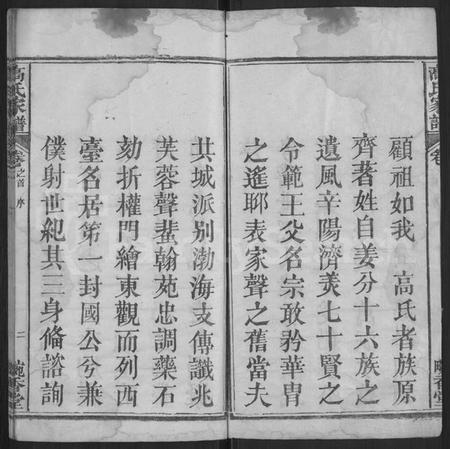 高氏家譜
卷
畹香堂
顧祖如我　高氏者族原
齊著姓自姜分十六族之
遺風辛陽濟羙七十賢之
令範王父名宗敢矜華胄
之遙耶表家聲之舊當夫
共城派别渤海支傳讖兆
芙蓉聲蜚翰苑忠調藥石
劾折權門繪東觀而列西
臺名居第一封國公兮兼
僕射世紀其三身俻諮詢
高氏家譜
卷之首　序
二
畹香堂